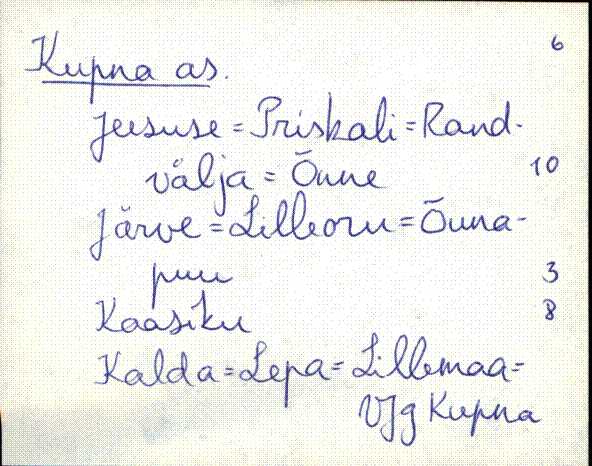 6
Kupna as.
Jeesuse = Priskali = Rand-
välja = Õnne 10
Järve = Lilleoru = Õuna-
puu 3
Kaasiku 8
Kalda = Lepa = Lillemaa =
VJg Kupna